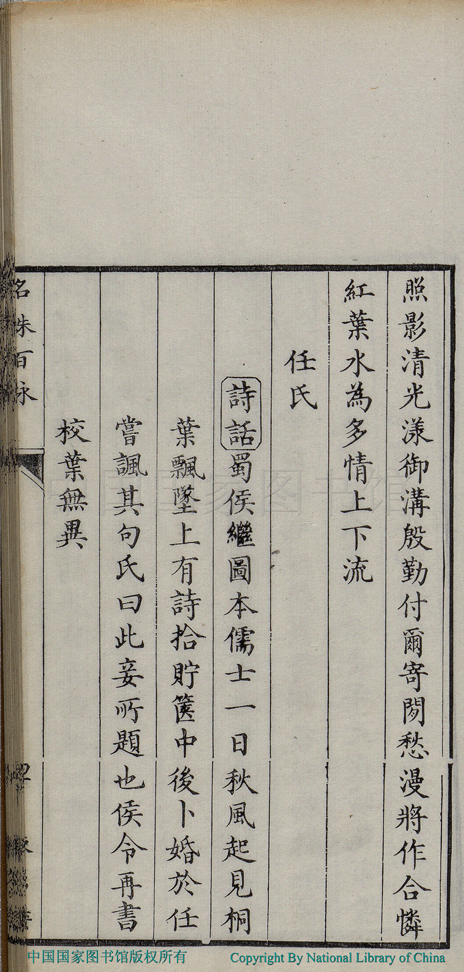 照影清光漾御溝殷勤付爾寄閒愁漫將作合憐
紅葉水為多情上下流
任氏
詩話蜀侯繼圖本儒士一日秋風起見桐
葉飄墜上有詩拾貯篋中後卜婚於任
嘗諷其句氏曰此妾所題也侯令再書
校葉無異
名姝百詠
中国国家图书馆版权所有
Copyright By National Library of China